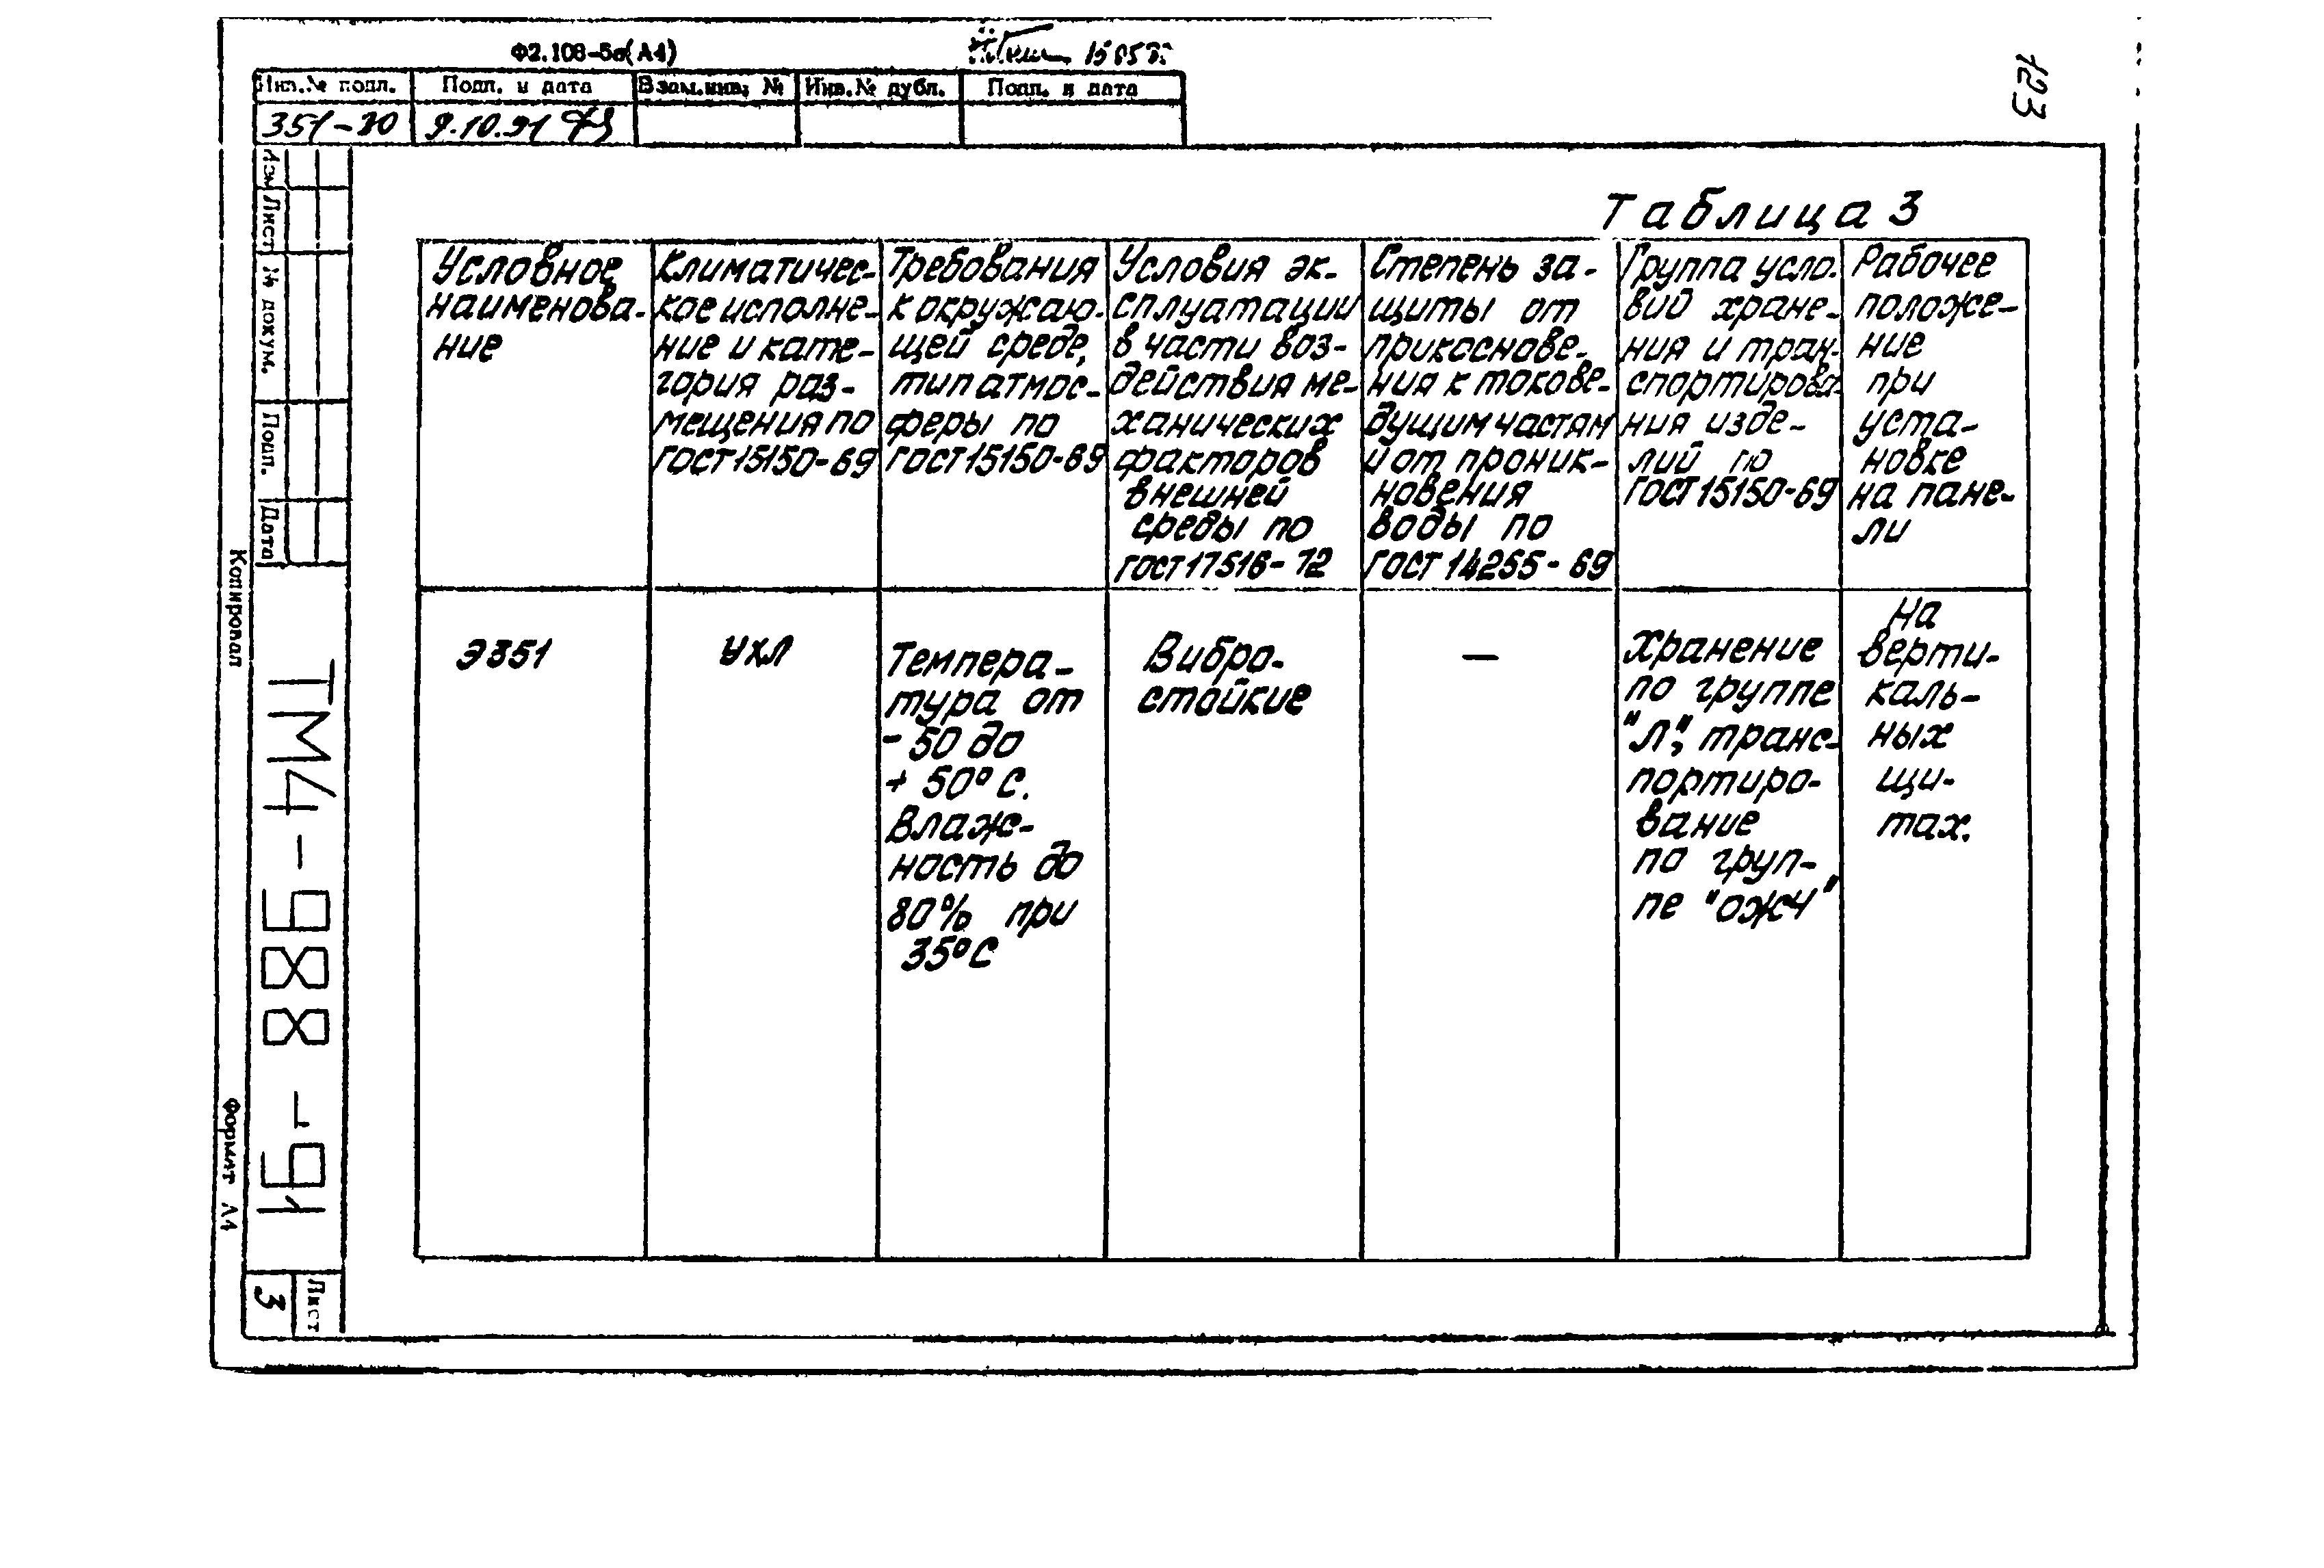 Ф2.108-5а(А4)
123
Инв.№ подл.
Подп. и дата
Взам.инв. №
Инв.№ дубл.
Подп. и дата
351-30
9.10.91
Изм
Лист
№ докум.
Подп.
Дата
Копировал
ТМ4-988
Формат А4
Лист
3
Таблица 3
Условное
наименова-
ние
Климатичес-
кое исполне-
ние и кате-
гория раз-
мещения по
ГОСТ 15150-69
Требования
к окружаю-
щей среде,
тип атмос-
феры по
ГОСТ 15150-69
Условия эк-
сплуатации
в части воз-
действия ме-
ханических
факторов
внешней
среды по
ГОСТ 17516-72
Степень за-
щиты от
прикоснове-
ния к токове-
дущим частям
и от проник-
новения
воды по
ГОСТ 14255-69
Группа усло-
вий хране-
ния и тран-
спортирова-
ния изде-
лий по
ГОСТ 15150-69
Рабочее
положе-
ние
при
уста-
новке
на пане-
ли
Э351
УХЛ
Темпера-
тура от
- 50 до
+ 50°С.
Влаж-
ность до
80% при
35°С
Вибро-
стойкие
—
Хранение
по группе
"Л", транс-
портиро-
вание
по груп-
пе "ОЖ4"
На
верти-
каль-
ных
щи-
тах.